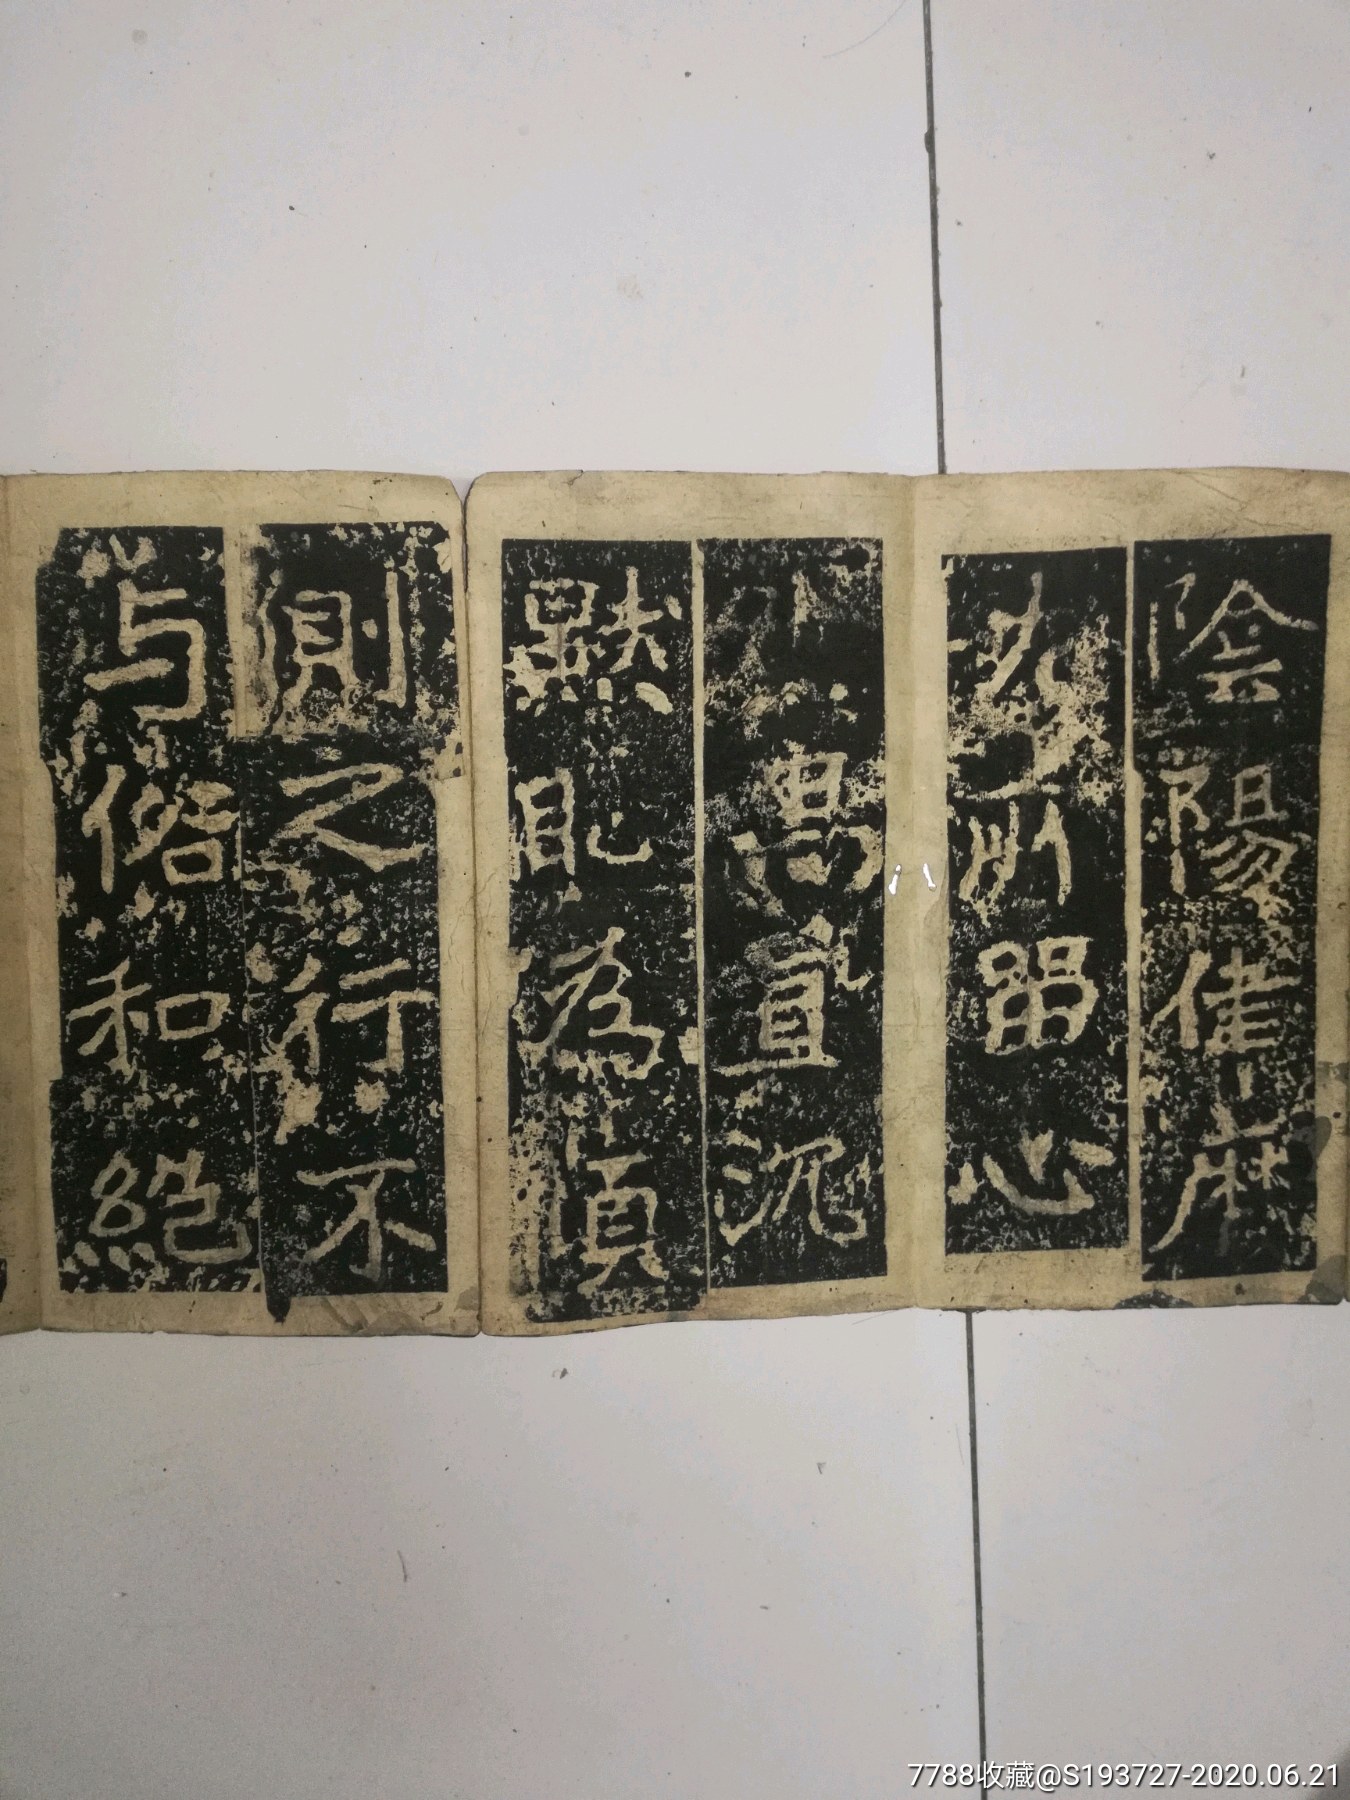 陰陽律麻
所留心
直沉
默為頂
測之行不
与俗和絕
7788收藏@S193727-2020.06.21